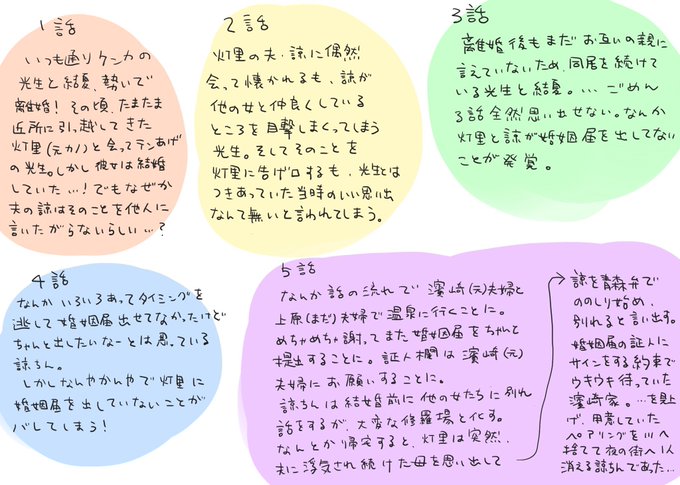 1話
いつも通りケンカの
光生と結夏、勢いで
離婚！その頃、たまたま
近所に引っ越してきた
灯里(元カノ)と会ってテンあげ
の光生。しかし彼女は結婚
していた…！でもなぜか
夫の諒はそのことを他人に
言いたがらないらしい…？
2話
灯里の夫・諒に偶然
会って懐かれるも、諒が
他の女と仲良くしている
ところを目撃しまくってしまう
光生。そしてそのことを
灯里に告げ口するも、光生とは
つきあっていた当時のいい思い出
なんて無いと言われてしまう。
3話
離婚後もまだお互いの親に
言えていないため、同居を続けて
いる光生と結夏。…ごめん
3話全然思い出せない。なんか
灯里と諒が婚姻届を出してない
ことが発覚。
4話
なんかいろいろあってタイミングを
逃して婚姻届出せてなかったけど
ちゃんと出したいなーとは思っている
諒ちん。
しかしなんやかんやで灯里に
婚姻届を出していないことが
バレてしまう！
5話
なんか話の流れで濱崎(元)夫婦と
上原(まだ)夫婦で温泉に行くことに。
めちゃめちゃ謝ってまた婚姻届をちゃんと
提出することに。証人欄は濱崎(元)
夫婦にお願いすることに。
諒ちんは結婚前に他の女たちに別れ
話をするが、大変な修羅場と化す。
なんとか帰宅すると、灯里は突然、
夫に浮気され続けた母を思い出して
諒を青森弁で
ののしり始め、
別れると言い出す。
婚姻届の証人に
サインをする約束で
ウキウキ待っていた
濱崎家。…を見上
げ、用意していた
ペアリングを川へ
捨てて夜の街へ1人
消える諒ちんであった…